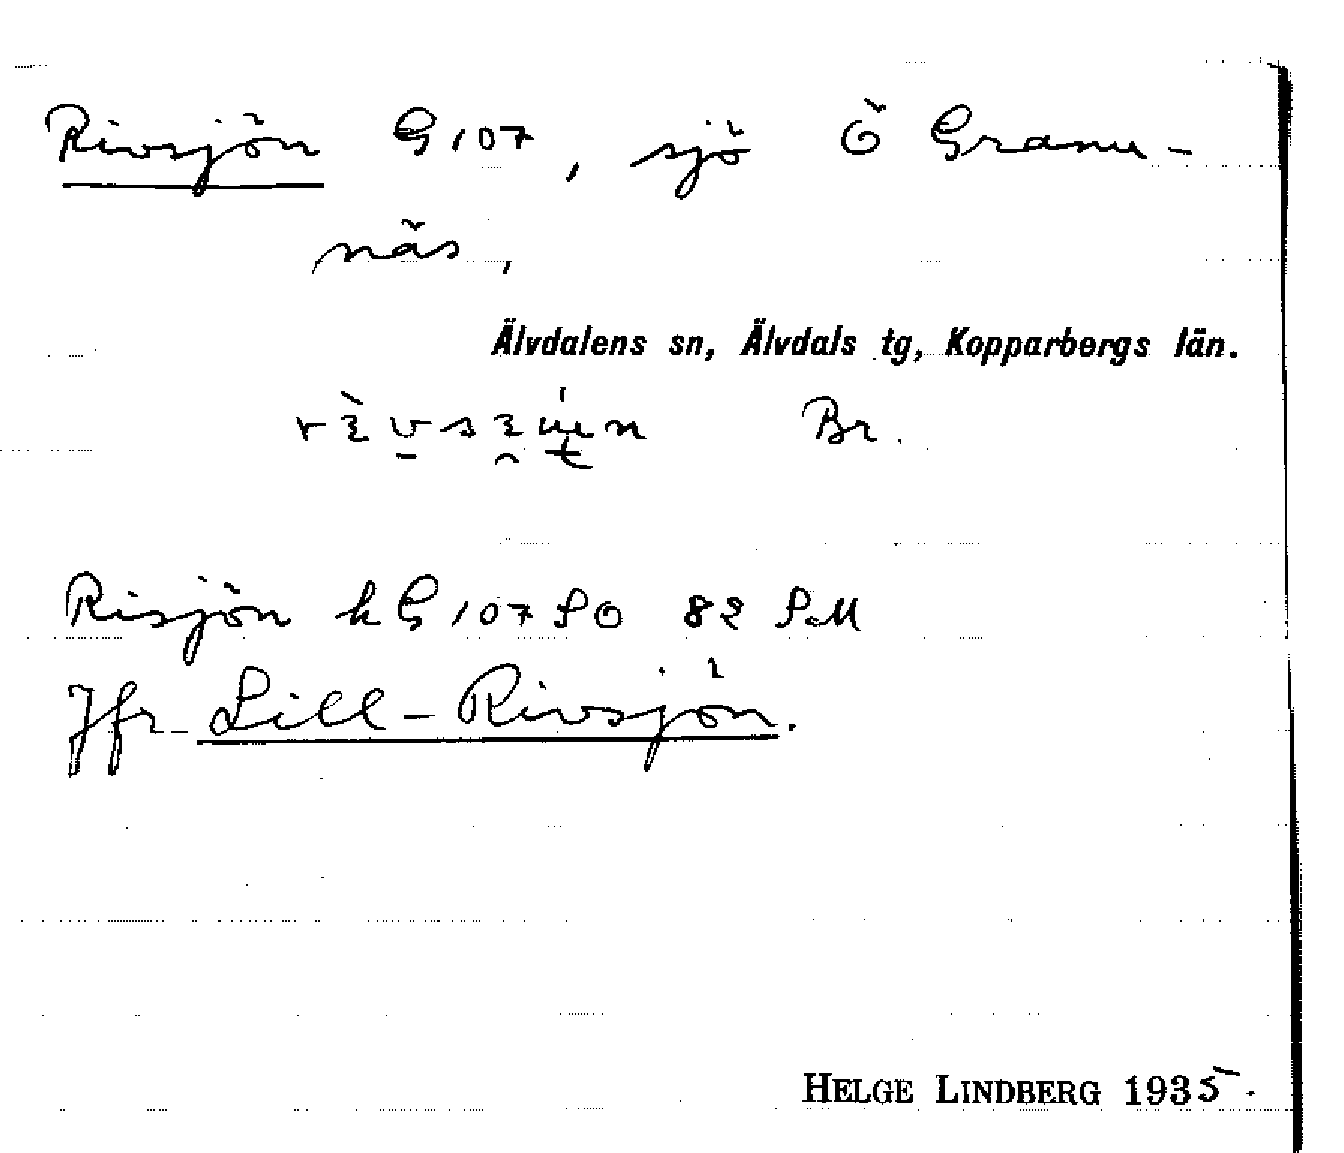 Rivsjön G 107, sjö Ö Granu-
näs,
Älvdalens sn, Älvdals tg, Kopparbergs län.
Br.
Risjön k G 107 SO 82 S.M
Jfr Lill-Rivsjön.
HELGE LINDBERG 1935.